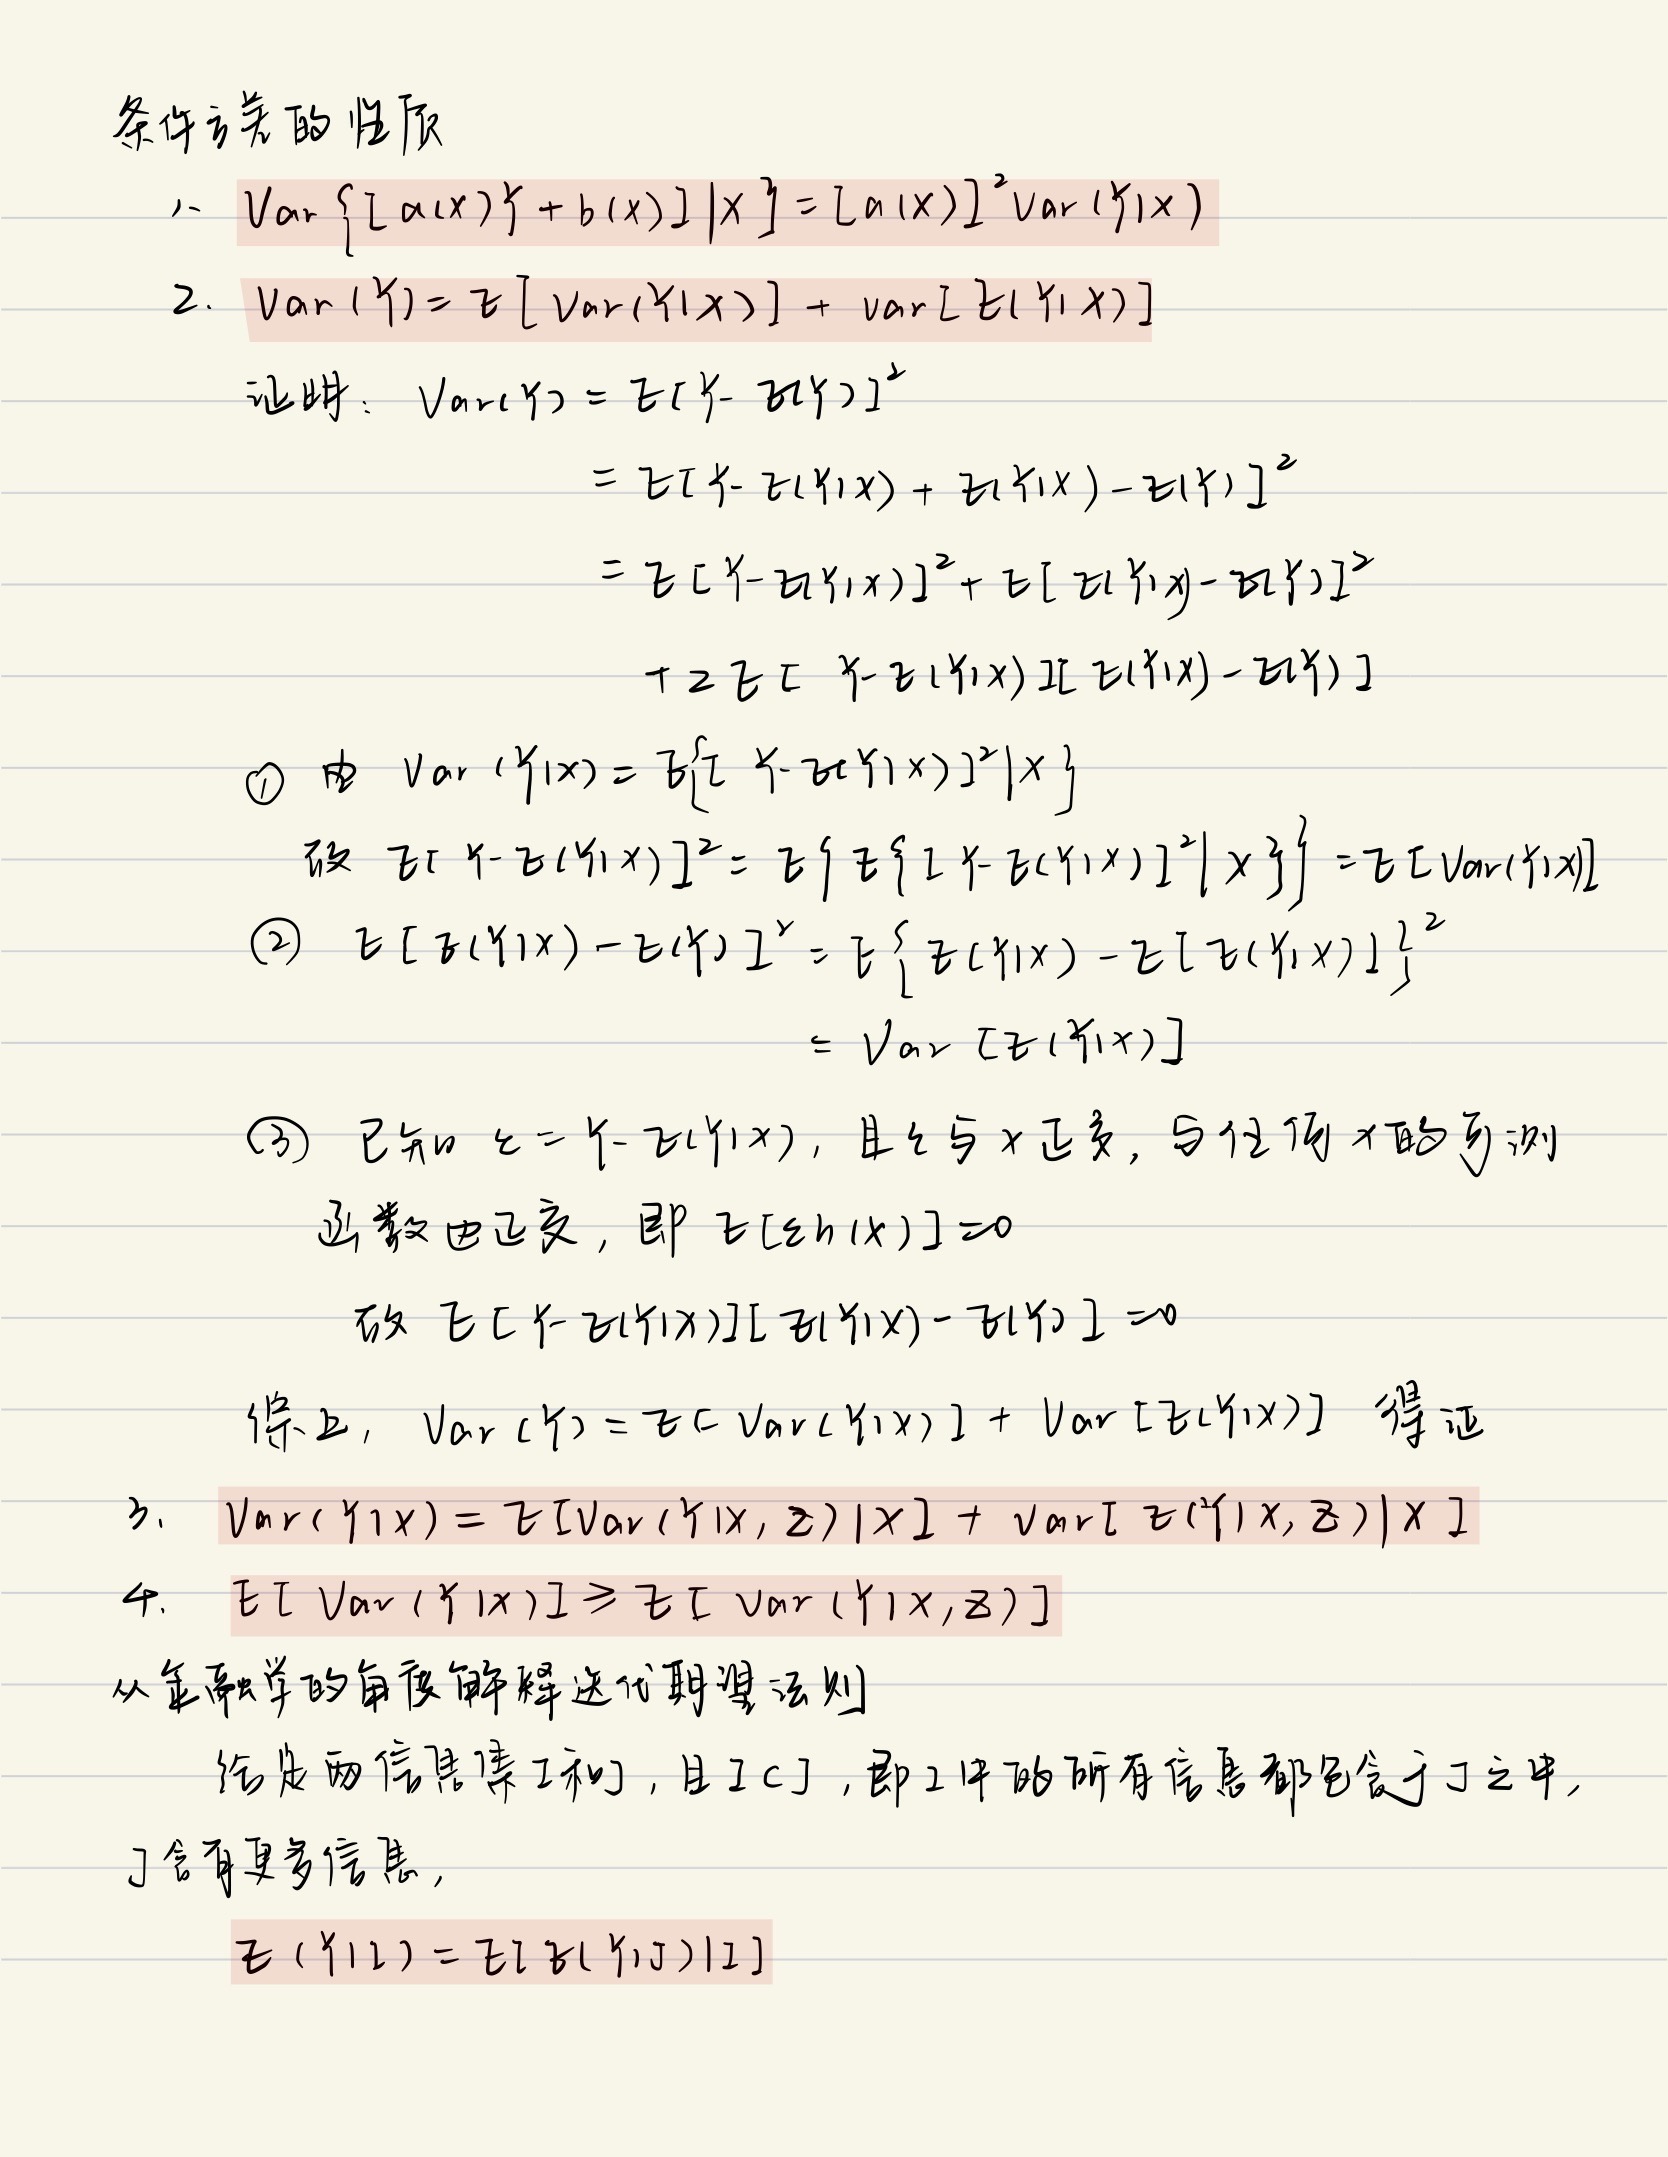 条件方差的性质
1. Var{[a(X)Y + b(X)]|X} = [a(X)]²Var(Y|X)
2. Var(Y) = E[Var(Y|X)] + Var[E(Y|X)]
证明: Var(Y) = E[Y-E(Y)]²
= E[Y-E(Y|X) + E(Y|X) - E(Y)]²
= E[Y-E(Y|X)]² + E[E(Y|X) - E(Y)]²
+ 2E[Y-E(Y|X)][E(Y|X) - E(Y)]
① 由 Var(Y|X) = E{[Y-E(Y|X)]²|X}
故 E[Y-E(Y|X)]² = E{E{[Y-E(Y|X)]²|X}} = E[Var(Y|X)]
② E[E(Y|X) - E(Y)]² = E{E(Y|X) - E[E(Y|X)]}²
= Var[E(Y|X)]
③ 已知 ε = Y-E(Y|X), 且ε与X正交, 与任何X的可测
函数也正交, 即 E[εh(X)]=0
故 E[Y-E(Y|X)][E(Y|X) - E(Y)] =0
综上, Var(Y) = E[Var(Y|X)] + Var[E(Y|X)] 得证
3. Var(Y|X) = E[Var(Y|X,Z)|X] + Var[E(Y|X,Z)|X]
4. E[Var(Y|X)] ≥ E[Var(Y|X,Z)]
从金融学的角度解释迭代期望法则
给定两信息集I和J, 且I⊂J, 即I中的所有信息都包含于J之中,
J含有更多信息,
E(Y|I) = E[E(Y|J)|I]